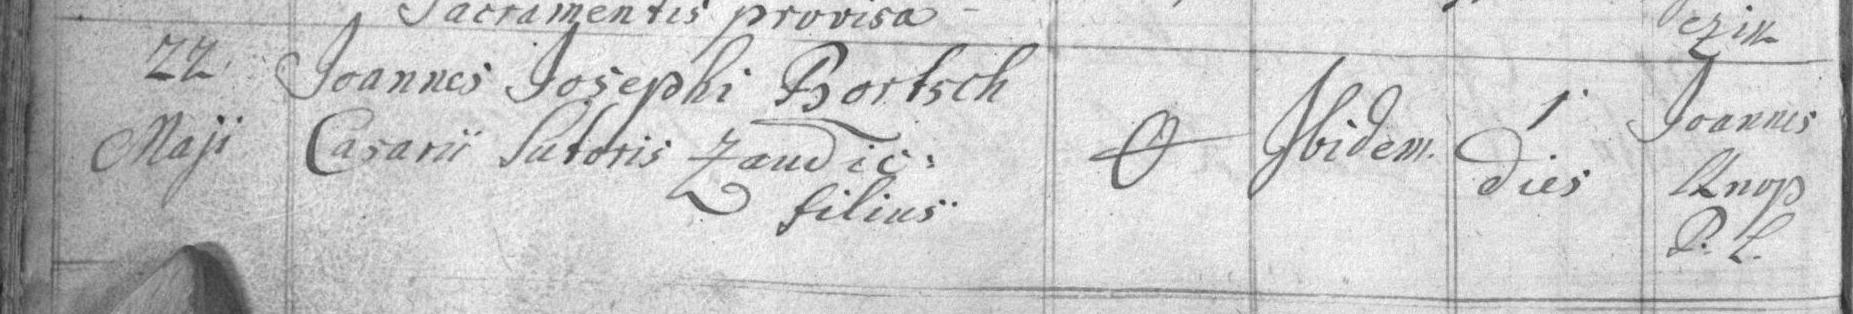 Sacramentis provisa
ezin
22. Joannes Josephi Bortsch
Maji Casarii Sutoris Zaudic: Ibidem. 1 dies Joannes
filius Knop
P. L.